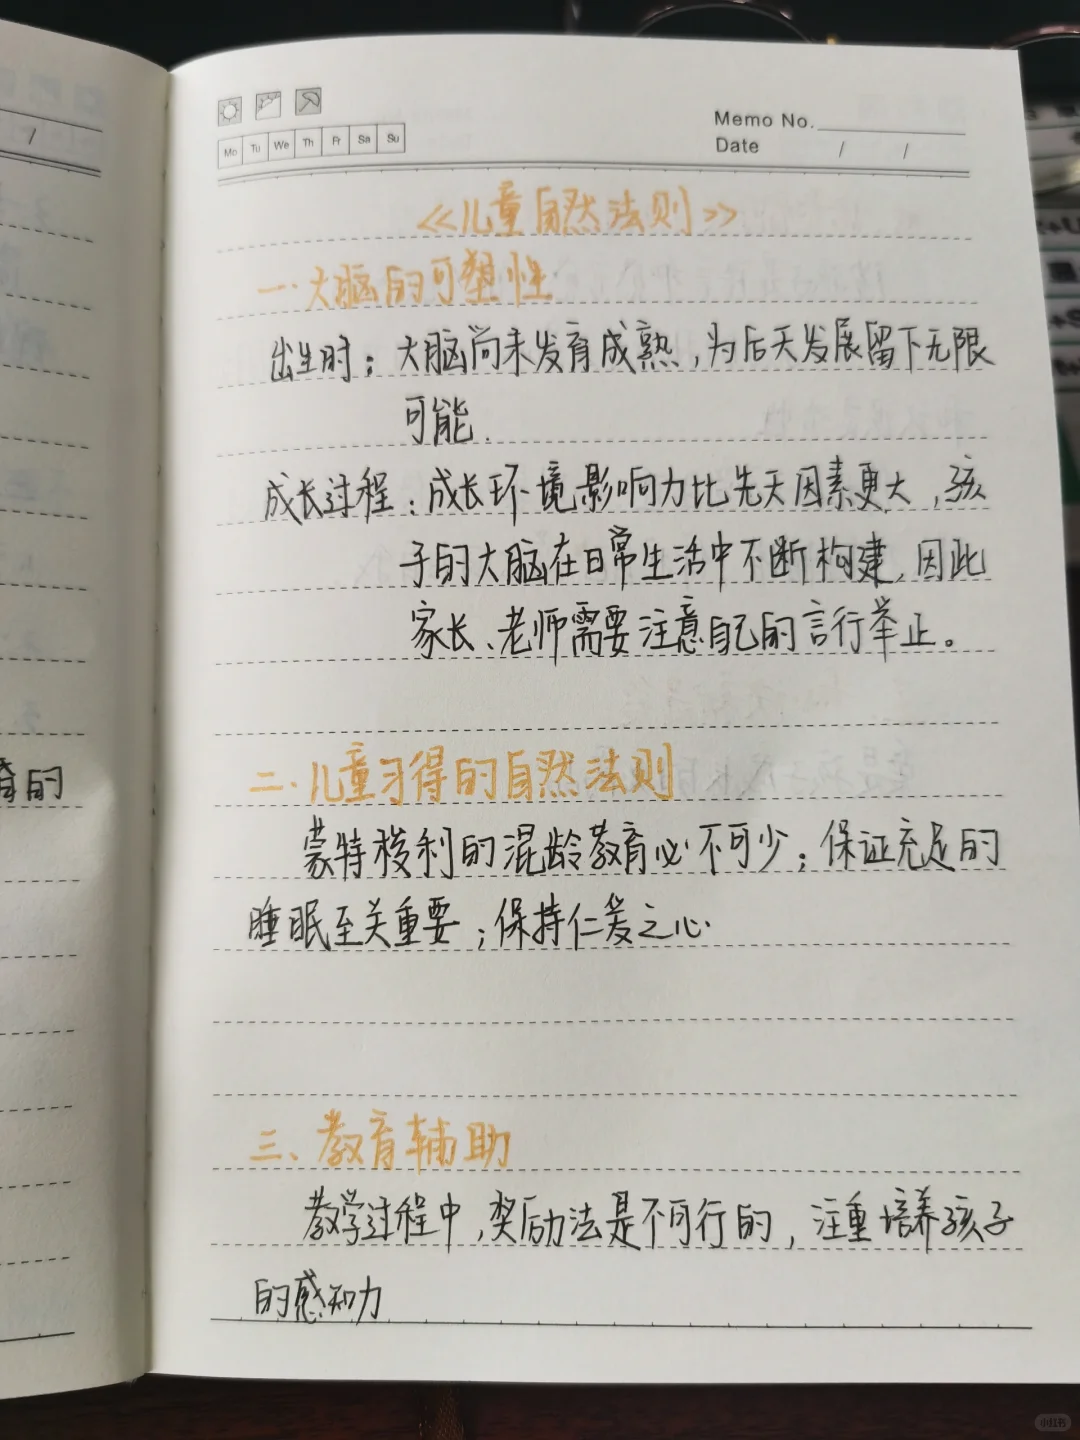 /
Mo Tu We Th Fr Sa Su
Memo No.
Date / /
《儿童自然法则》
一.大脑的可塑性
出生时；大脑尚未发育成熟，为后天发展留下无限
可能.
成长过程：成长环境影响力比先天因素更大，孩
子的大脑在日常生活中不断构建，因此
家长、老师需要注意自己的言行举止。
二.儿童习得的自然法则
蒙特梭利的混龄教育必不可少；保证充足的
睡眠至关重要；保持仁爱之心.
三、教育辅助
教学过程中，奖励法是不可行的，注重培养孩子
的感知力
的
小红书